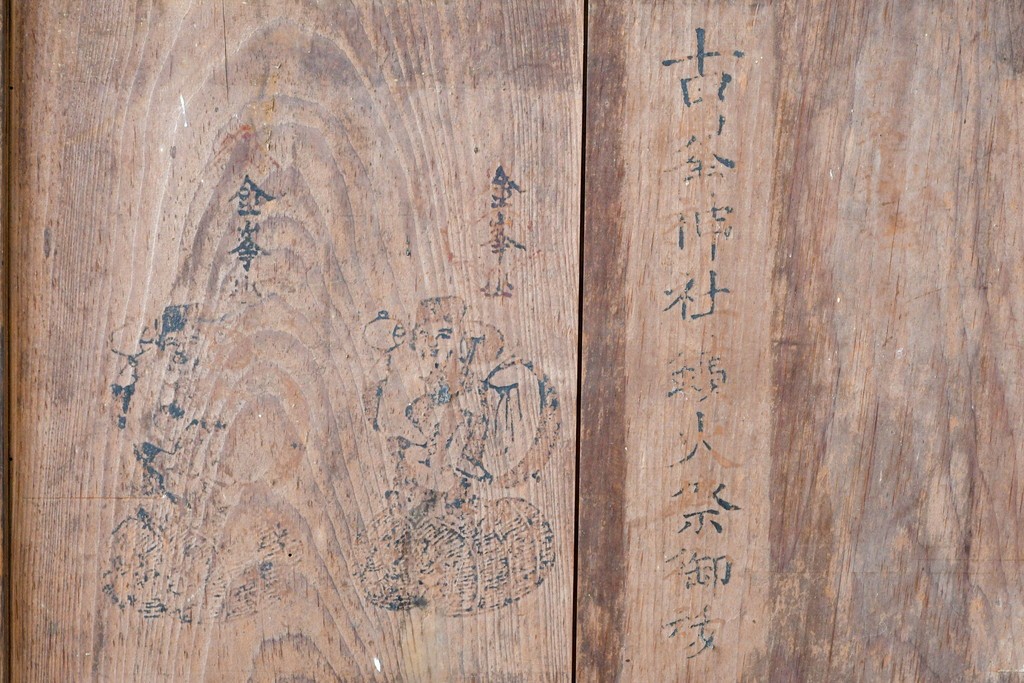 古峯神社鎮火祭御
金峯山
金峯山